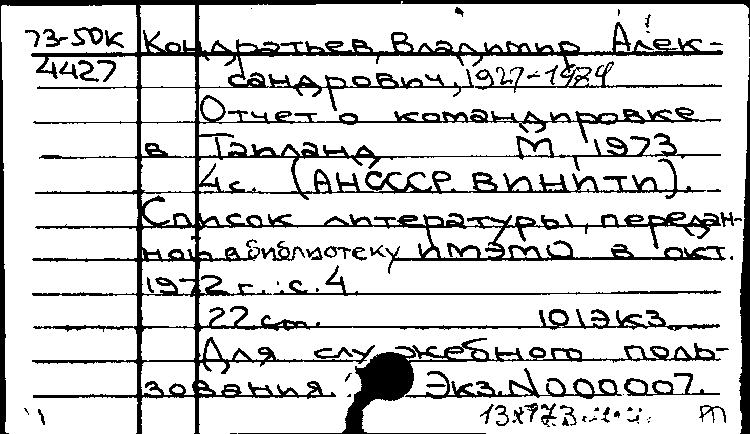 73-50К Кондратьев, Владимир Алек-
4427 сандрович, 1927-1984
Отчет о командировке
в Таиланд. М. 1973.
4 с. (АН СССР. ВИНИТИ).
Список литературы, передан-
ной в библиотеку ИМЭМО в окт.
1972 г.: с. 4.
22 см. 101 экз.
Для служебного поль-
зования. Экз. N 000007.